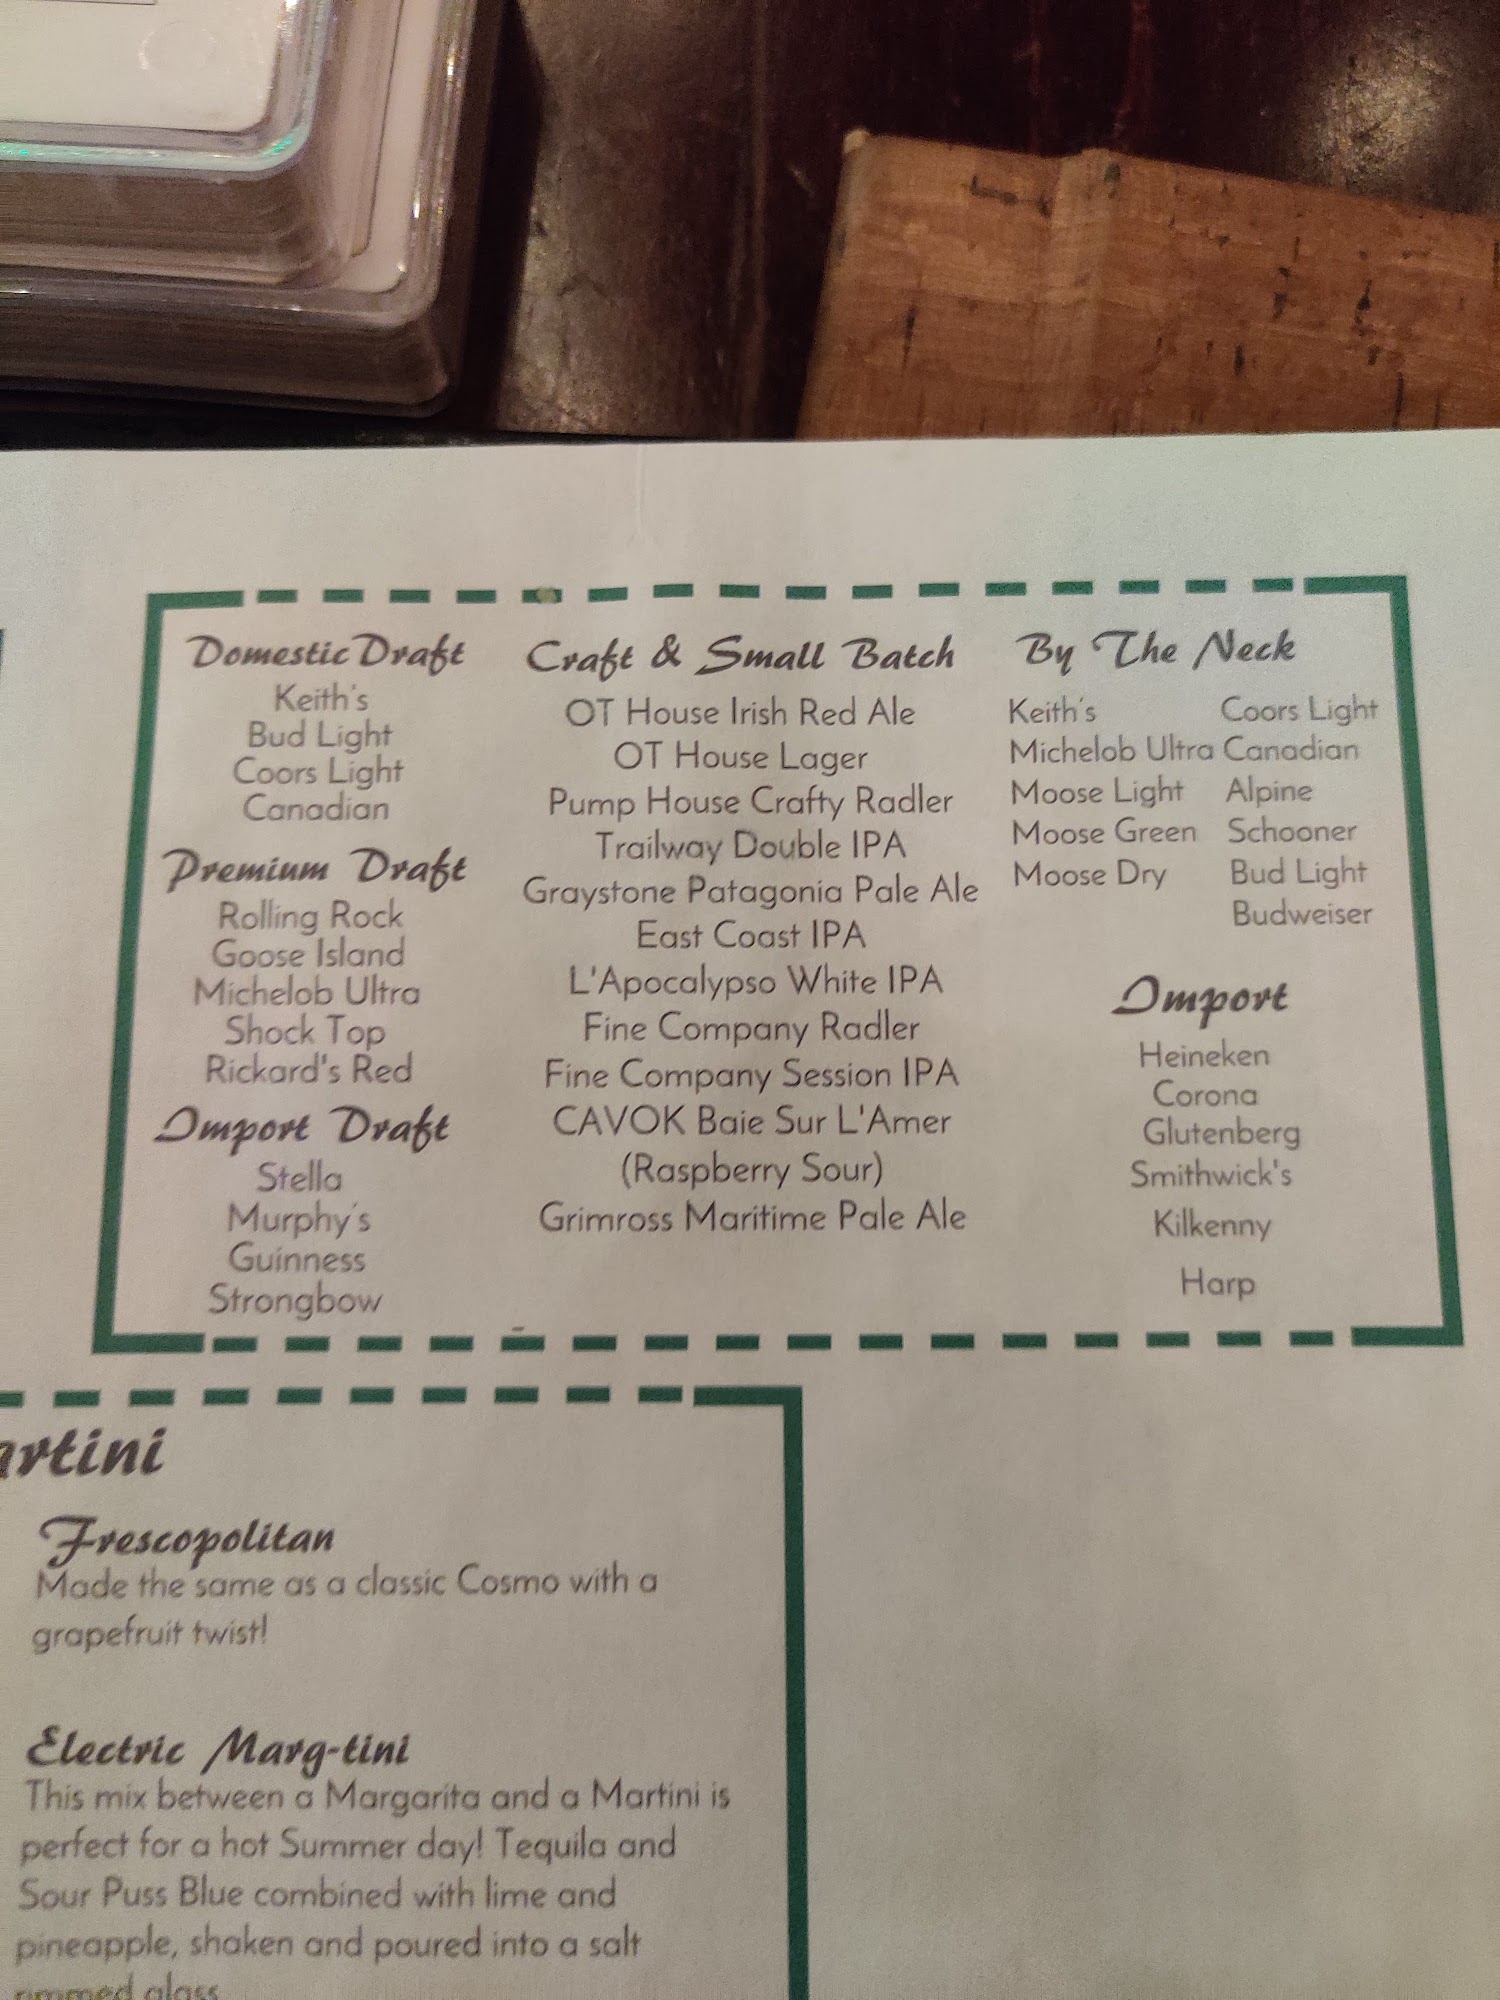 Domestic Draft
Keith's
Bud Light
Coors Light
Canadian
Premium Draft
Rolling Rock
Goose Island
Michelob Ultra
Shock Top
Rickard's Red
Import Draft
Stella
Murphy's
Guinness
Strongbow
Craft & Small Batch
OT House Irish Red Ale
OT House Lager
Pump House Crafty Radler
Trailway Double IPA
Graystone Patagonia Pale Ale
East Coast IPA
L'Apocalypso White IPA
Fine Company Radler
Fine Company Session IPA
CAVOK Baie Sur L'Amer
(Raspberry Sour)
Grimross Maritime Pale Ale
By The Neck
Keith's
Michelob Ultra
Moose Light
Moose Green
Moose Dry
Coors Light
Canadian
Alpine
Schooner
Bud Light
Budweiser
Import
Heineken
Corona
Glutenberg
Smithwick's
Kilkenny
Harp
artini
Frescopolitan
Made the same as a classic Cosmo with a
grapefruit twist!
Electric Marg-tini
This mix between a Margarita and a Martini is
perfect for a hot Summer day! Tequila and
Sour Puss Blue combined with lime and
pineapple, shaken and poured into a salt
rimmed glass